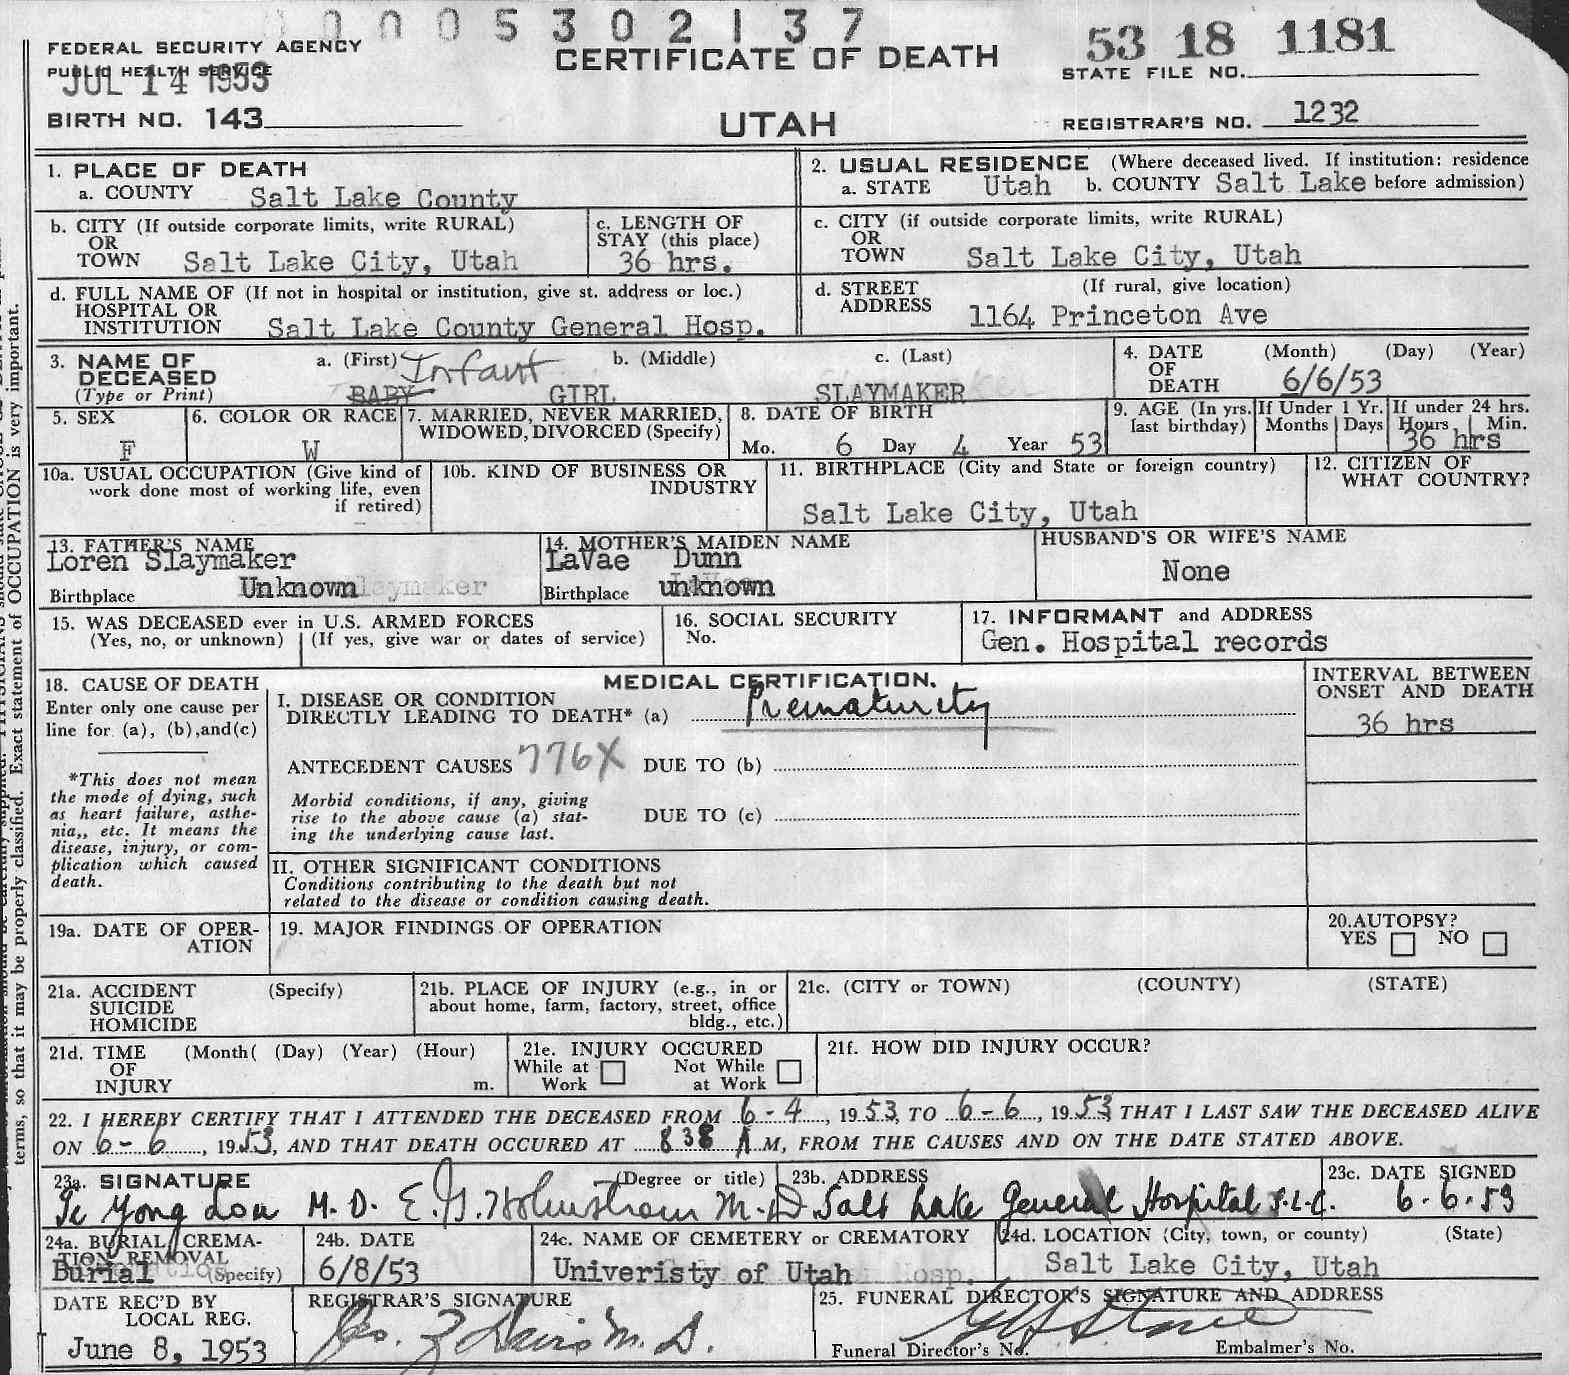 0 0 0 5 3 0 2 1 3 7
FEDERAL SECURITY AGENCY
PUBLIC HEALTH SERVICE
JUL 14 1953
BIRTH NO. 143
CERTIFICATE OF DEATH
UTAH
53 18 1181
STATE FILE NO.
REGISTRAR'S NO. 1232
1. PLACE OF DEATH
a. COUNTY Salt Lake County
b. CITY (If outside corporate limits, write RURAL)
OR
TOWN Salt Lake City, Utah
c. LENGTH OF
STAY (this place)
36 hrs.
d. FULL NAME OF (If not in hospital or institution, give st. address or loc.)
HOSPITAL OR
INSTITUTION Salt Lake County General Hosp.
2. USUAL RESIDENCE (Where deceased lived. If institution: residence
a. STATE Utah b. COUNTY Salt Lake before admission)
c. CITY (if outside corporate limits, write RURAL)
OR
TOWN Salt Lake City, Utah
d. STREET (If rural, give location)
ADDRESS 1164 Princeton Ave
3. NAME OF
DECEASED
(Type or Print)
a. (First) Infant b. (Middle) c. (Last)
BABY GIRL SLAYMAKER
4. DATE (Month) (Day) (Year)
OF
DEATH 6/6/53
5. SEX
F
6. COLOR OR RACE
W
7. MARRIED, NEVER MARRIED,
WIDOWED, DIVORCED (Specify)
8. DATE OF BIRTH
Mo. 6 Day 4 Year 53
9. AGE (In yrs.
last birthday)
If Under 1 Yr.
Months Days
If under 24 hrs.
Hours Min.
36 hrs
10a. USUAL OCCUPATION (Give kind of
work done most of working life, even
if retired)
10b. KIND OF BUSINESS OR
INDUSTRY
11. BIRTHPLACE (City and State or foreign country)
Salt Lake City, Utah
12. CITIZEN OF
WHAT COUNTRY?
13. FATHER'S NAME
Loren Slaymaker
Birthplace Unknown
14. MOTHER'S MAIDEN NAME
LaVae Dunn
Birthplace unknown
HUSBAND'S OR WIFE'S NAME
None
15. WAS DECEASED ever in U.S. ARMED FORCES
(Yes, no, or unknown) (If yes, give war or dates of service)
16. SOCIAL SECURITY
No.
17. INFORMANT and ADDRESS
Gen. Hospital records
18. CAUSE OF DEATH
Enter only one cause per
line for (a), (b),and(c)
*This does not mean
the mode of dying, such
as heart failure, asthe-
nia,, etc. It means the
disease, injury, or com-
plication which caused
death.
MEDICAL CERTIFICATION.
I. DISEASE OR CONDITION
DIRECTLY LEADING TO DEATH* (a) Prematurity
ANTECEDENT CAUSES 776X DUE TO (b)
Morbid conditions, if any, giving
rise to the above cause (a) stat-
ing the underlying cause last.
DUE TO (c)
II. OTHER SIGNIFICANT CONDITIONS
Conditions contributing to the death but not
related to the disease or condition causing death.
INTERVAL BETWEEN
ONSET AND DEATH
36 hrs
19a. DATE OF OPER-
ATION
19. MAJOR FINDINGS OF OPERATION
20.AUTOPSY?
YES NO
21a. ACCIDENT (Specify)
SUICIDE
HOMICIDE
21b. PLACE OF INJURY (e.g., in or
about home, farm, factory, street, office
bldg., etc.)
21c. (CITY or TOWN) (COUNTY) (STATE)
21d. TIME (Month( (Day) (Year) (Hour)
OF
INJURY m.
21e. INJURY OCCURED
While at Not While
Work at Work
21f. HOW DID INJURY OCCUR?
22. I HEREBY CERTIFY THAT I ATTENDED THE DECEASED FROM 6-4, 1953, TO 6-6, 1953 THAT I LAST SAW THE DECEASED ALIVE
ON 6-6, 1953, AND THAT DEATH OCCURED AT 838 A.M, FROM THE CAUSES AND ON THE DATE STATED ABOVE.
23a. SIGNATURE (Degree or title)
Yong Lou M.D. E.G. Holmstrom M.D.
23b. ADDRESS
Salt Lake General Hospital S.L.C.
23c. DATE SIGNED
6.6.53
24a. BURIAL, CREMA-
TION REMOVAL
Burial (Specify)
24b. DATE
6/8/53
24c. NAME OF CEMETERY OR CREMATORY
Univeristy of Utah
24d. LOCATION (City, town, or county) (State)
Salt Lake City, Utah
DATE REC'D BY
LOCAL REG.
June 8, 1953
REGISTRAR'S SIGNATURE
Geo. Z Davis M.D.
25. FUNERAL DIRECTOR'S SIGNATURE AND ADDRESS
Funeral Director's No. Embalmer's No.
terms, so that it may be properly classified. Exact statement of OCCUPATION is very important.